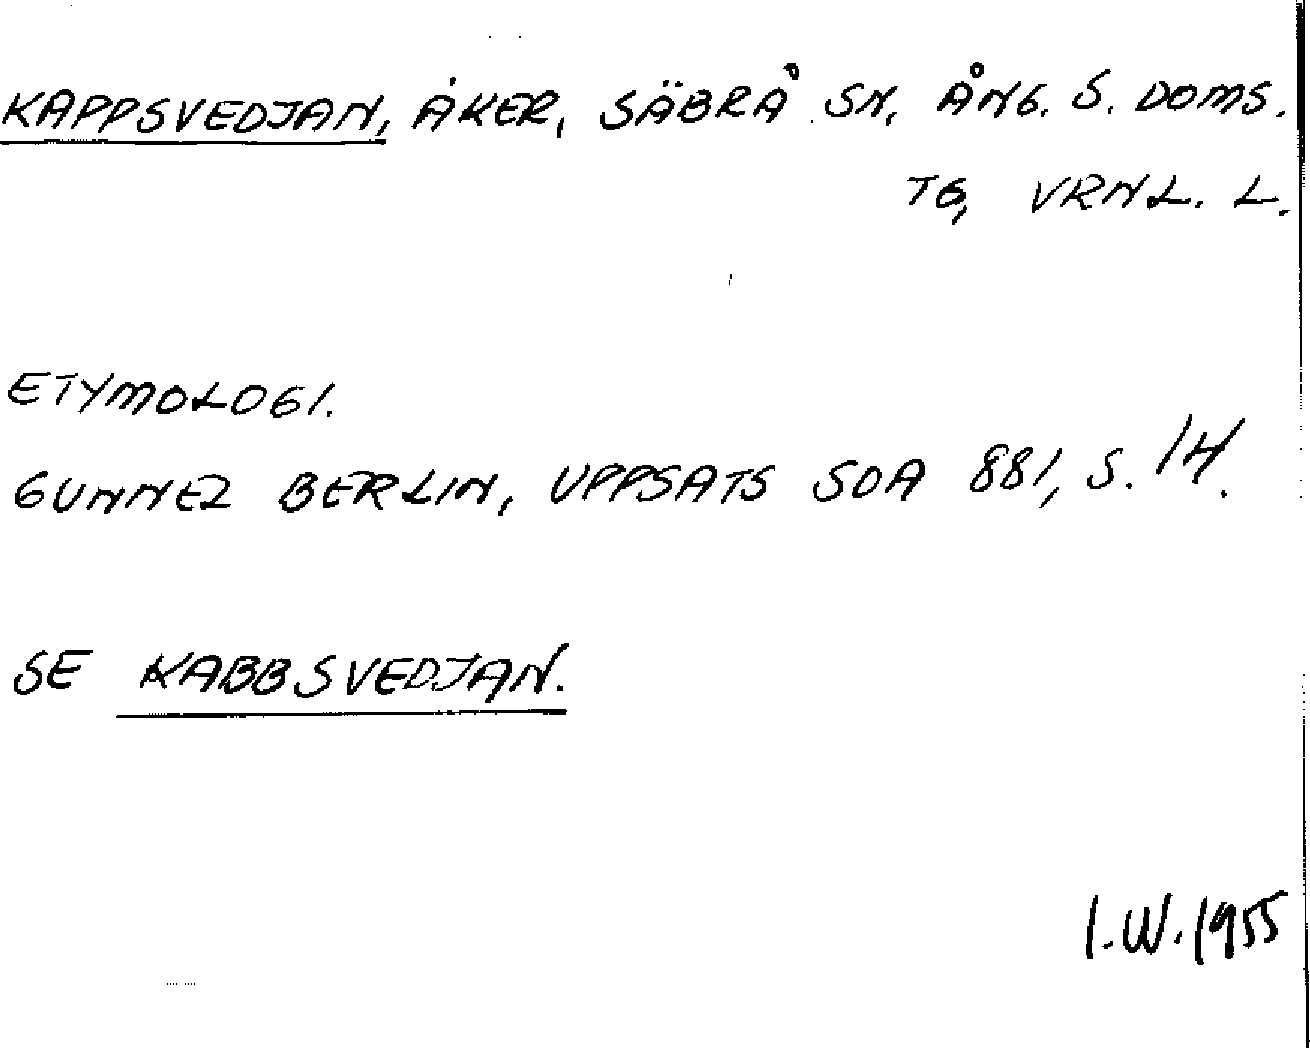 KAPPSVEDJAN, ÅKER, SÄBRÅ SN, ÅNG. S. DOMS.
TG, VRNL. L.
ETYMOLOGI.
GUNNEL BERLIN, UPPSATS SOA 881, S. 14.
SE KABBSVEDJAN.
I.W. 1955